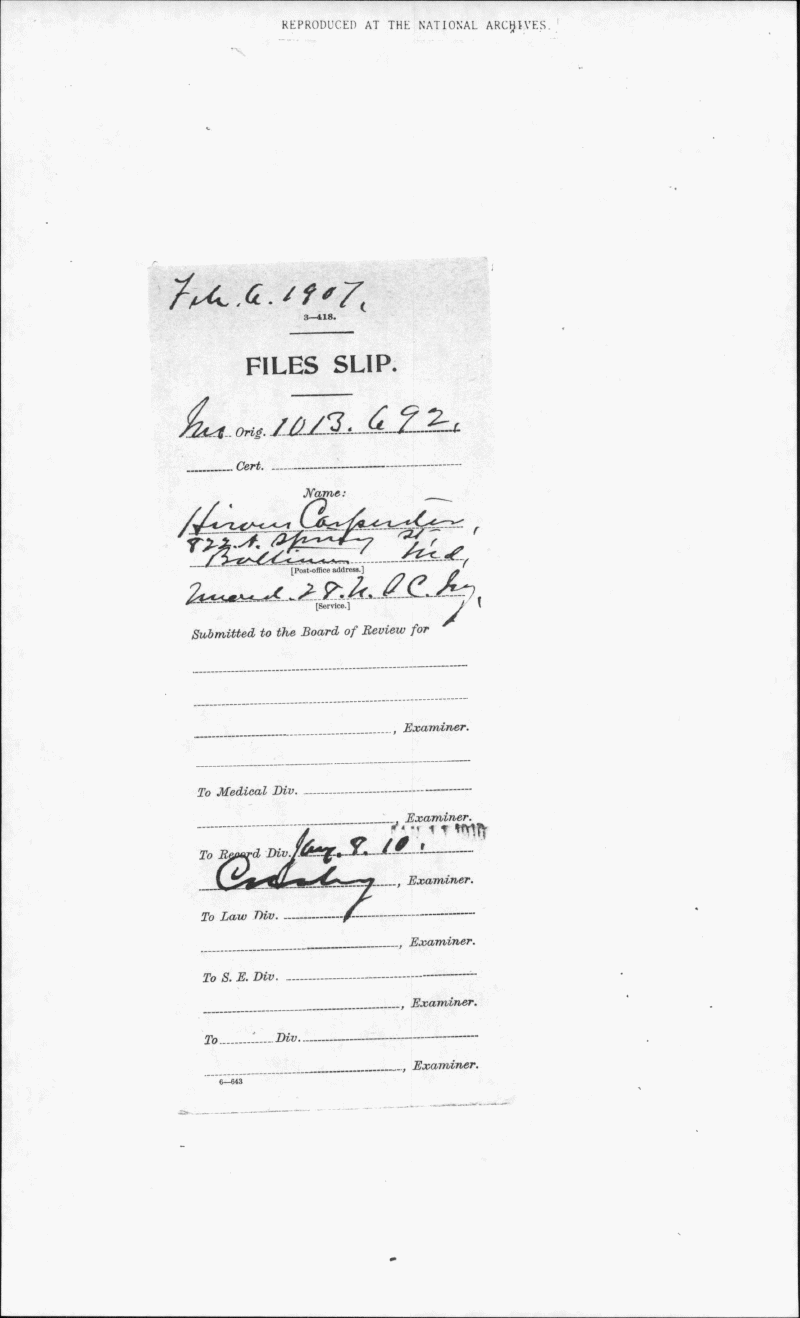 REPRODUCED AT THE NATIONAL ARCHIVES.
Feb. 6. 1907.
3—418.
FILES SLIP.
Orig. 1013.692.
Cert.
Name:
Carpenter,
822 N. Spring St.
Baltimore Md.
[Post-office address.]
28. U. S. C.
[Service.]
Submitted to the Board of Review for
, Examiner.
To Medical Div.
, Examiner.
To Record Div. Jany. 8. 10.
Crosby, Examiner.
To Law Div.
, Examiner.
To S. E. Div.
, Examiner.
To Div.
, Examiner.
6—643